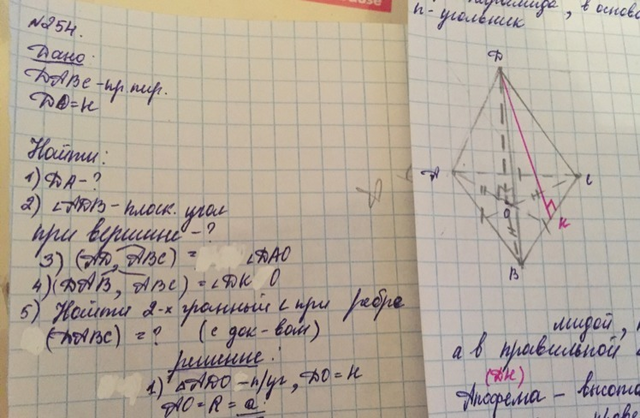 №254.
Дано:
DABC - пр. пир.
DO = H
Найти:
1) DA - ?
2) ∠ADB - плоск. угол
при вершине - ?
3) (AD, ABC) = ∠DAO
4) (DAB, ABC) = ∠DK O
5) Найти 2-х гранный ∠ при ребре
(DABC) = ? (с док-вом)
решение:
1) ∠ADO - п/уг, DO = H
AO = R = a
, в осно
n-угольник
D
A
C
O
K
B
мидой,
а в правильной
(DK)
Апофема - высота